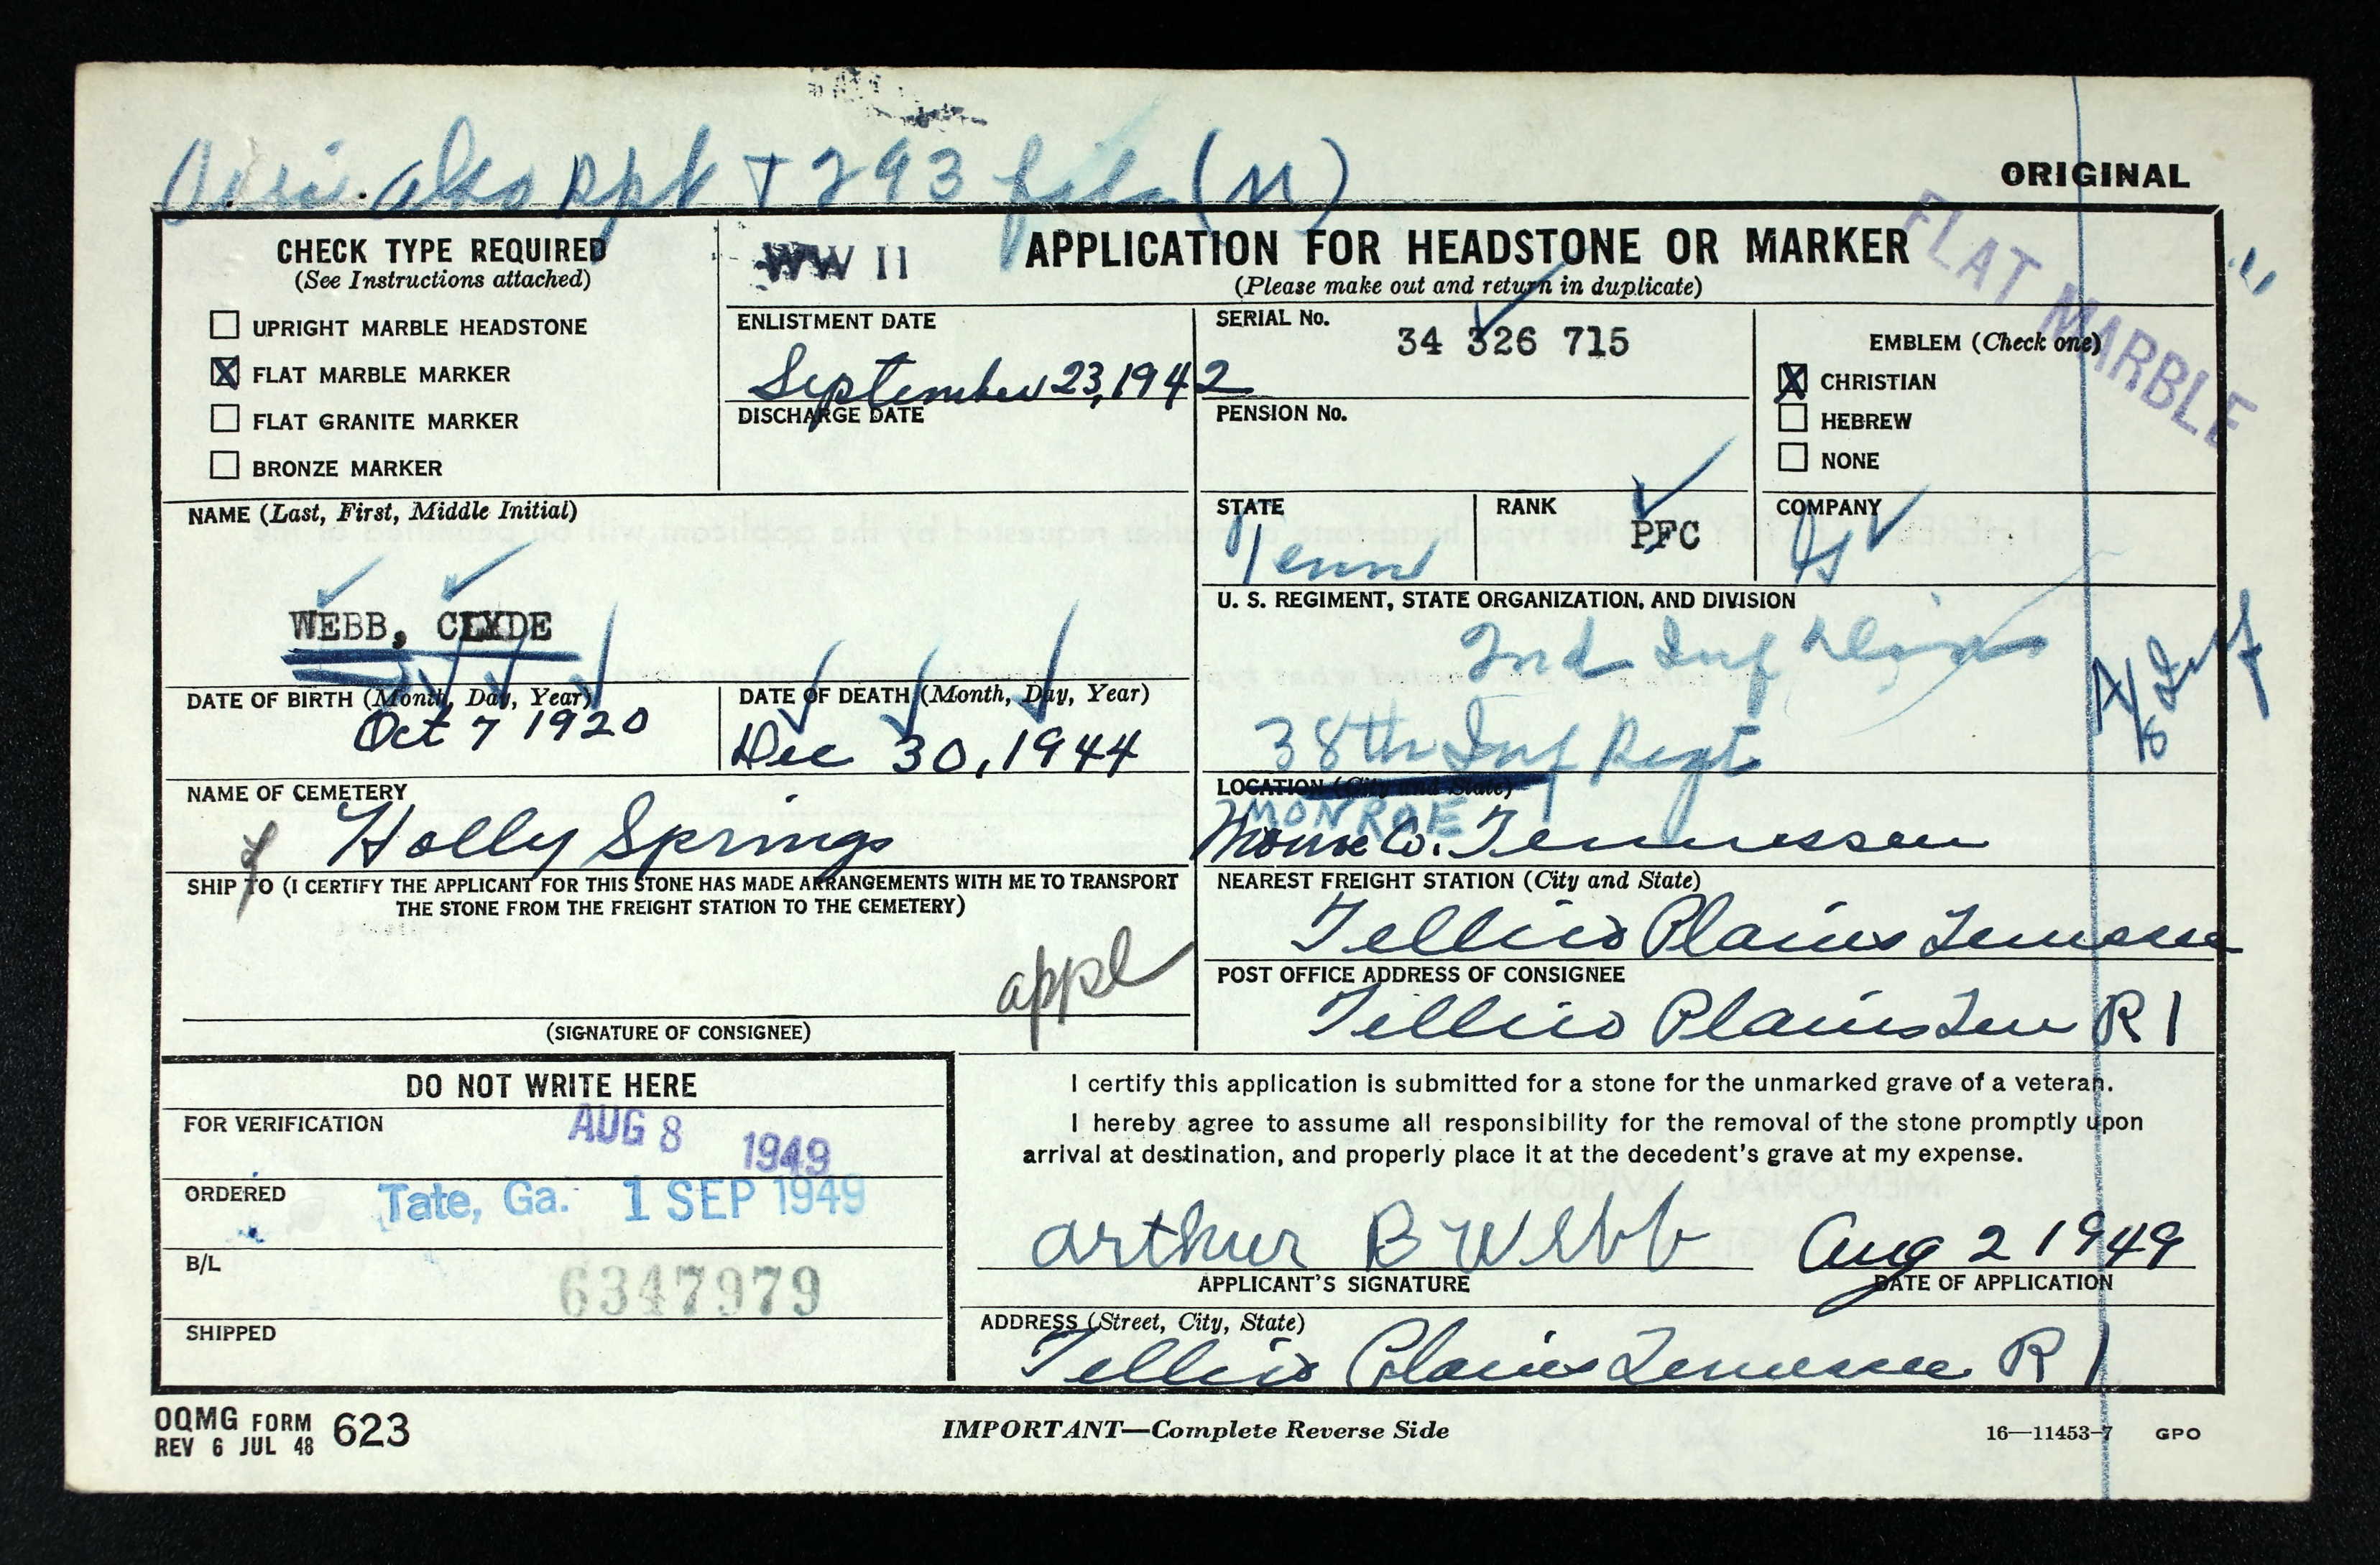 + 293 file (M)
ORIGINAL
CHECK TYPE REQUIRED
(See Instructions attached)
UPRIGHT MARBLE HEADSTONE
X FLAT MARBLE MARKER
FLAT GRANITE MARKER
BRONZE MARKER
WW II
APPLICATION FOR HEADSTONE OR MARKER
(Please make out and return in duplicate)
FLAT MARBLE
ENLISTMENT DATE
September 23, 1942
DISCHARGE DATE
SERIAL No.
34 326 715
PENSION No.
EMBLEM (Check one)
X CHRISTIAN
HEBREW
NONE
NAME (Last, First, Middle Initial)
WEBB, CLYDE
STATE
Tenn
RANK
PFC
COMPANY
G
U. S. REGIMENT, STATE ORGANIZATION, AND DIVISION
2nd Inf Div
38th Inf Regt
DATE OF BIRTH (Month, Day, Year)
Oct 7 1920
DATE OF DEATH (Month, Day, Year)
Dec 30, 1944
NAME OF CEMETERY
Holly Springs
LOCATION (City and State)
MONROE
Monroe Co. Tennessee
SHIP TO (I CERTIFY THE APPLICANT FOR THIS STONE HAS MADE ARRANGEMENTS WITH ME TO TRANSPORT
THE STONE FROM THE FREIGHT STATION TO THE CEMETERY)
appl
(SIGNATURE OF CONSIGNEE)
NEAREST FREIGHT STATION (City and State)
Tellico Plains Tennessee
POST OFFICE ADDRESS OF CONSIGNEE
Tellico Plains Ten R 1
DO NOT WRITE HERE
FOR VERIFICATION
AUG 8 1949
ORDERED
Tate, Ga. 1 SEP 1949
B/L
6347979
SHIPPED
I certify this application is submitted for a stone for the unmarked grave of a veteran.
I hereby agree to assume all responsibility for the removal of the stone promptly upon
arrival at destination, and properly place it at the decedent's grave at my expense.
Arthur B Webb
Aug 2 1949
APPLICANT'S SIGNATURE
DATE OF APPLICATION
ADDRESS (Street, City, State)
Tellico Plains Tennessee R 1
OQMG FORM 623
REV 6 JUL 48
IMPORTANT—Complete Reverse Side
16—11453-7 GPO